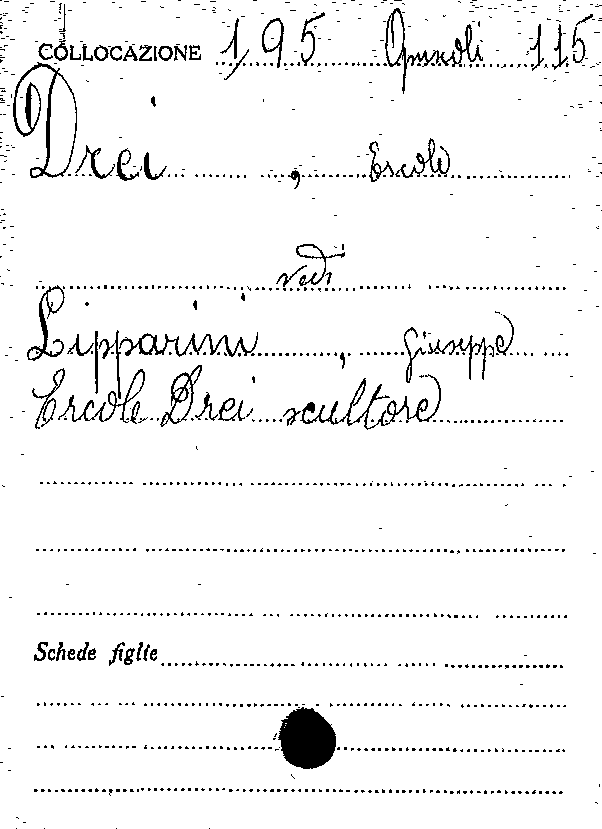 COLLOCAZIONE 195 Opuscoli 115
1
Drei, Ercole
vedi
Lipparini, Giuseppe
Ercole Drei scultore
Schede figlie